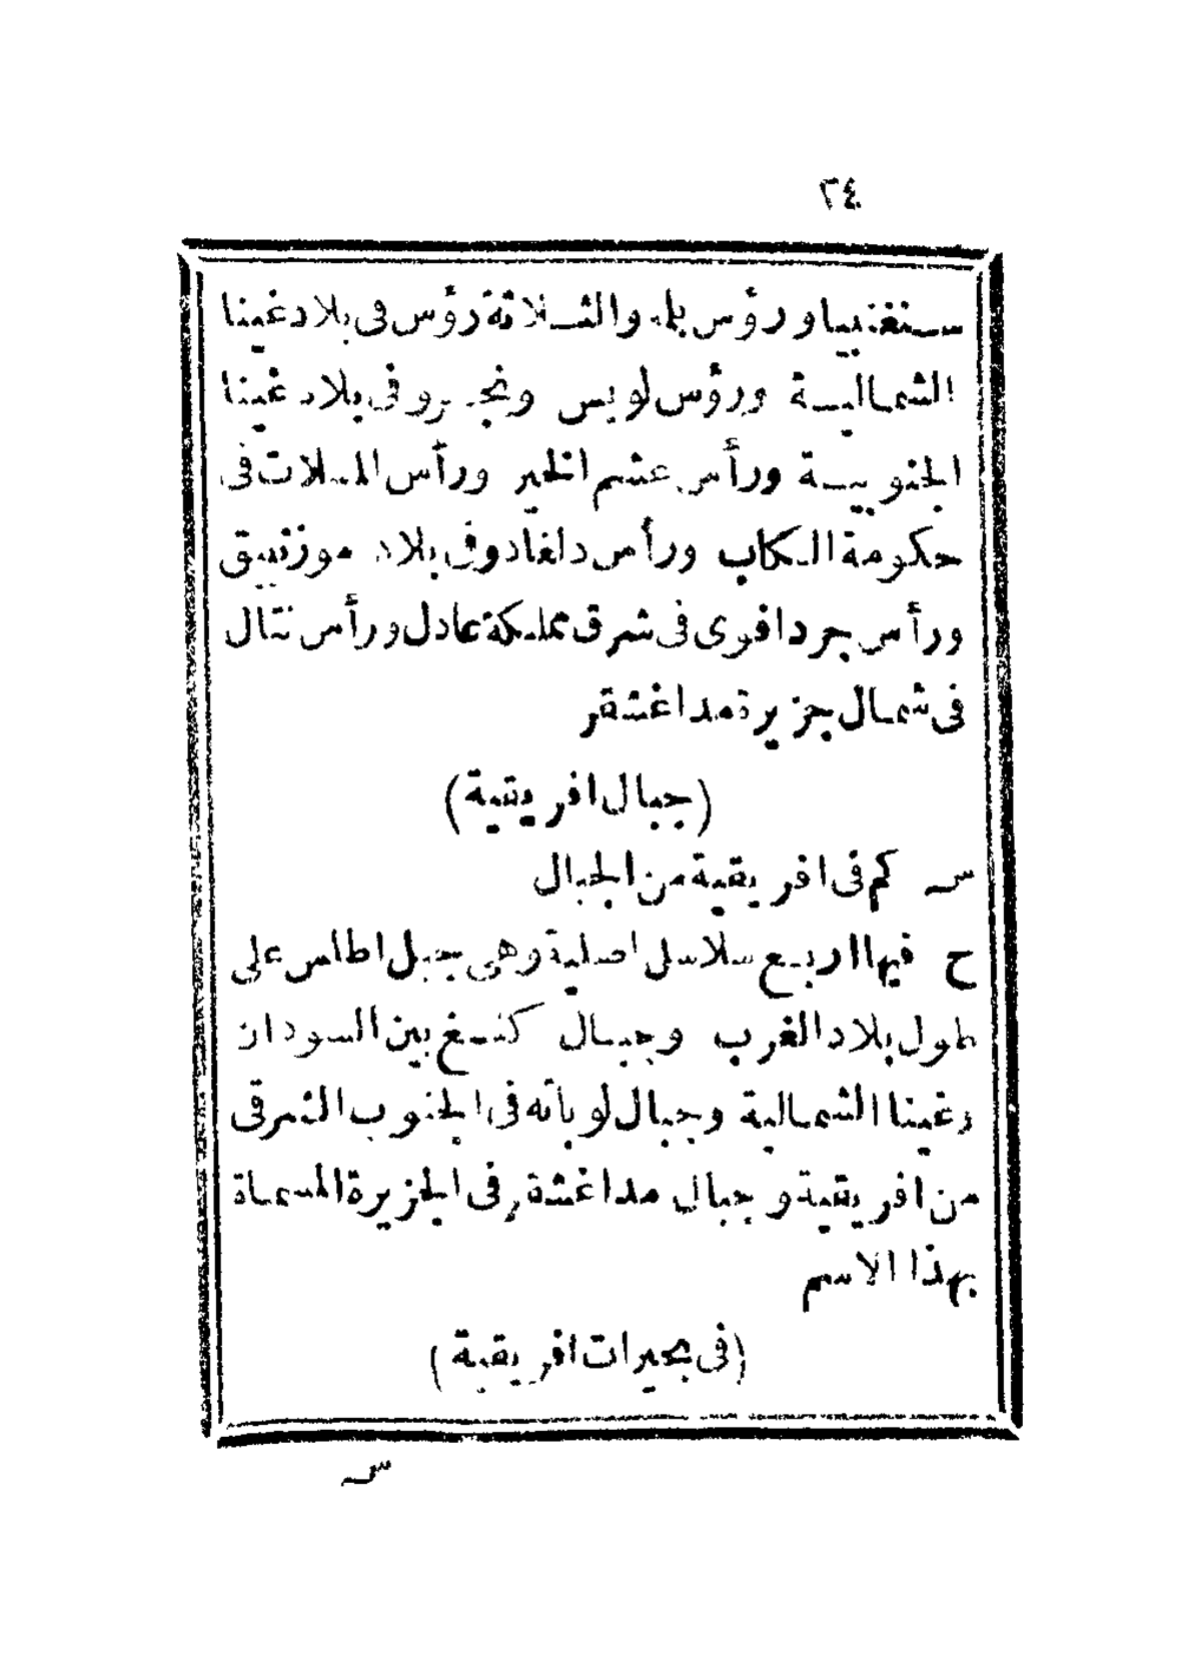 ٣٤
سنتغنبيا ورؤس بلمه والثلاثة رؤس فى بلاد غينا
الشمالية ورؤس لوبس ونجرو فى بلاد غينا
الجنوبية ورأس عشم الخير ورأس المسلات فى
حكومة الكاب ورأس دلغادو فى بلاد موزنبيق
ورأس جردافوى فى شرق مملكة عادل ورأس نتال
فى شمال جزيرة مداغشقر
(جبال افريقية)
س كم فى افريقية من الجبال
ج فيها اربع سلاسل اصلية وهى جبل اطلس على
طول بلاد الغرب وجبال كنسغ بين السودان
وغينا الشمالية وجبال لوباته فى الجنوب الشرقى
من افريقية وجبال مداغشقر فى الجزيرة المسماة
بهذا الاسم
(فى بحيرات افريقية)
س